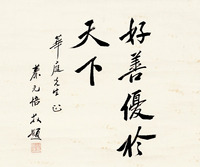 好善優於
天下
華庭先生正
蔡元培敬題